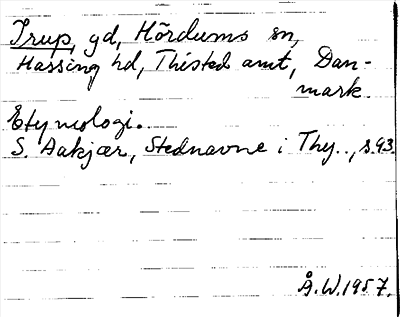 Irup, gd, Hördums sn,
Hassing hd, Thisted amt, Dan-
mark.
Etymologi.
S. Aakjær, Stednavne i Thy.., s.93.
Å.W.1957.